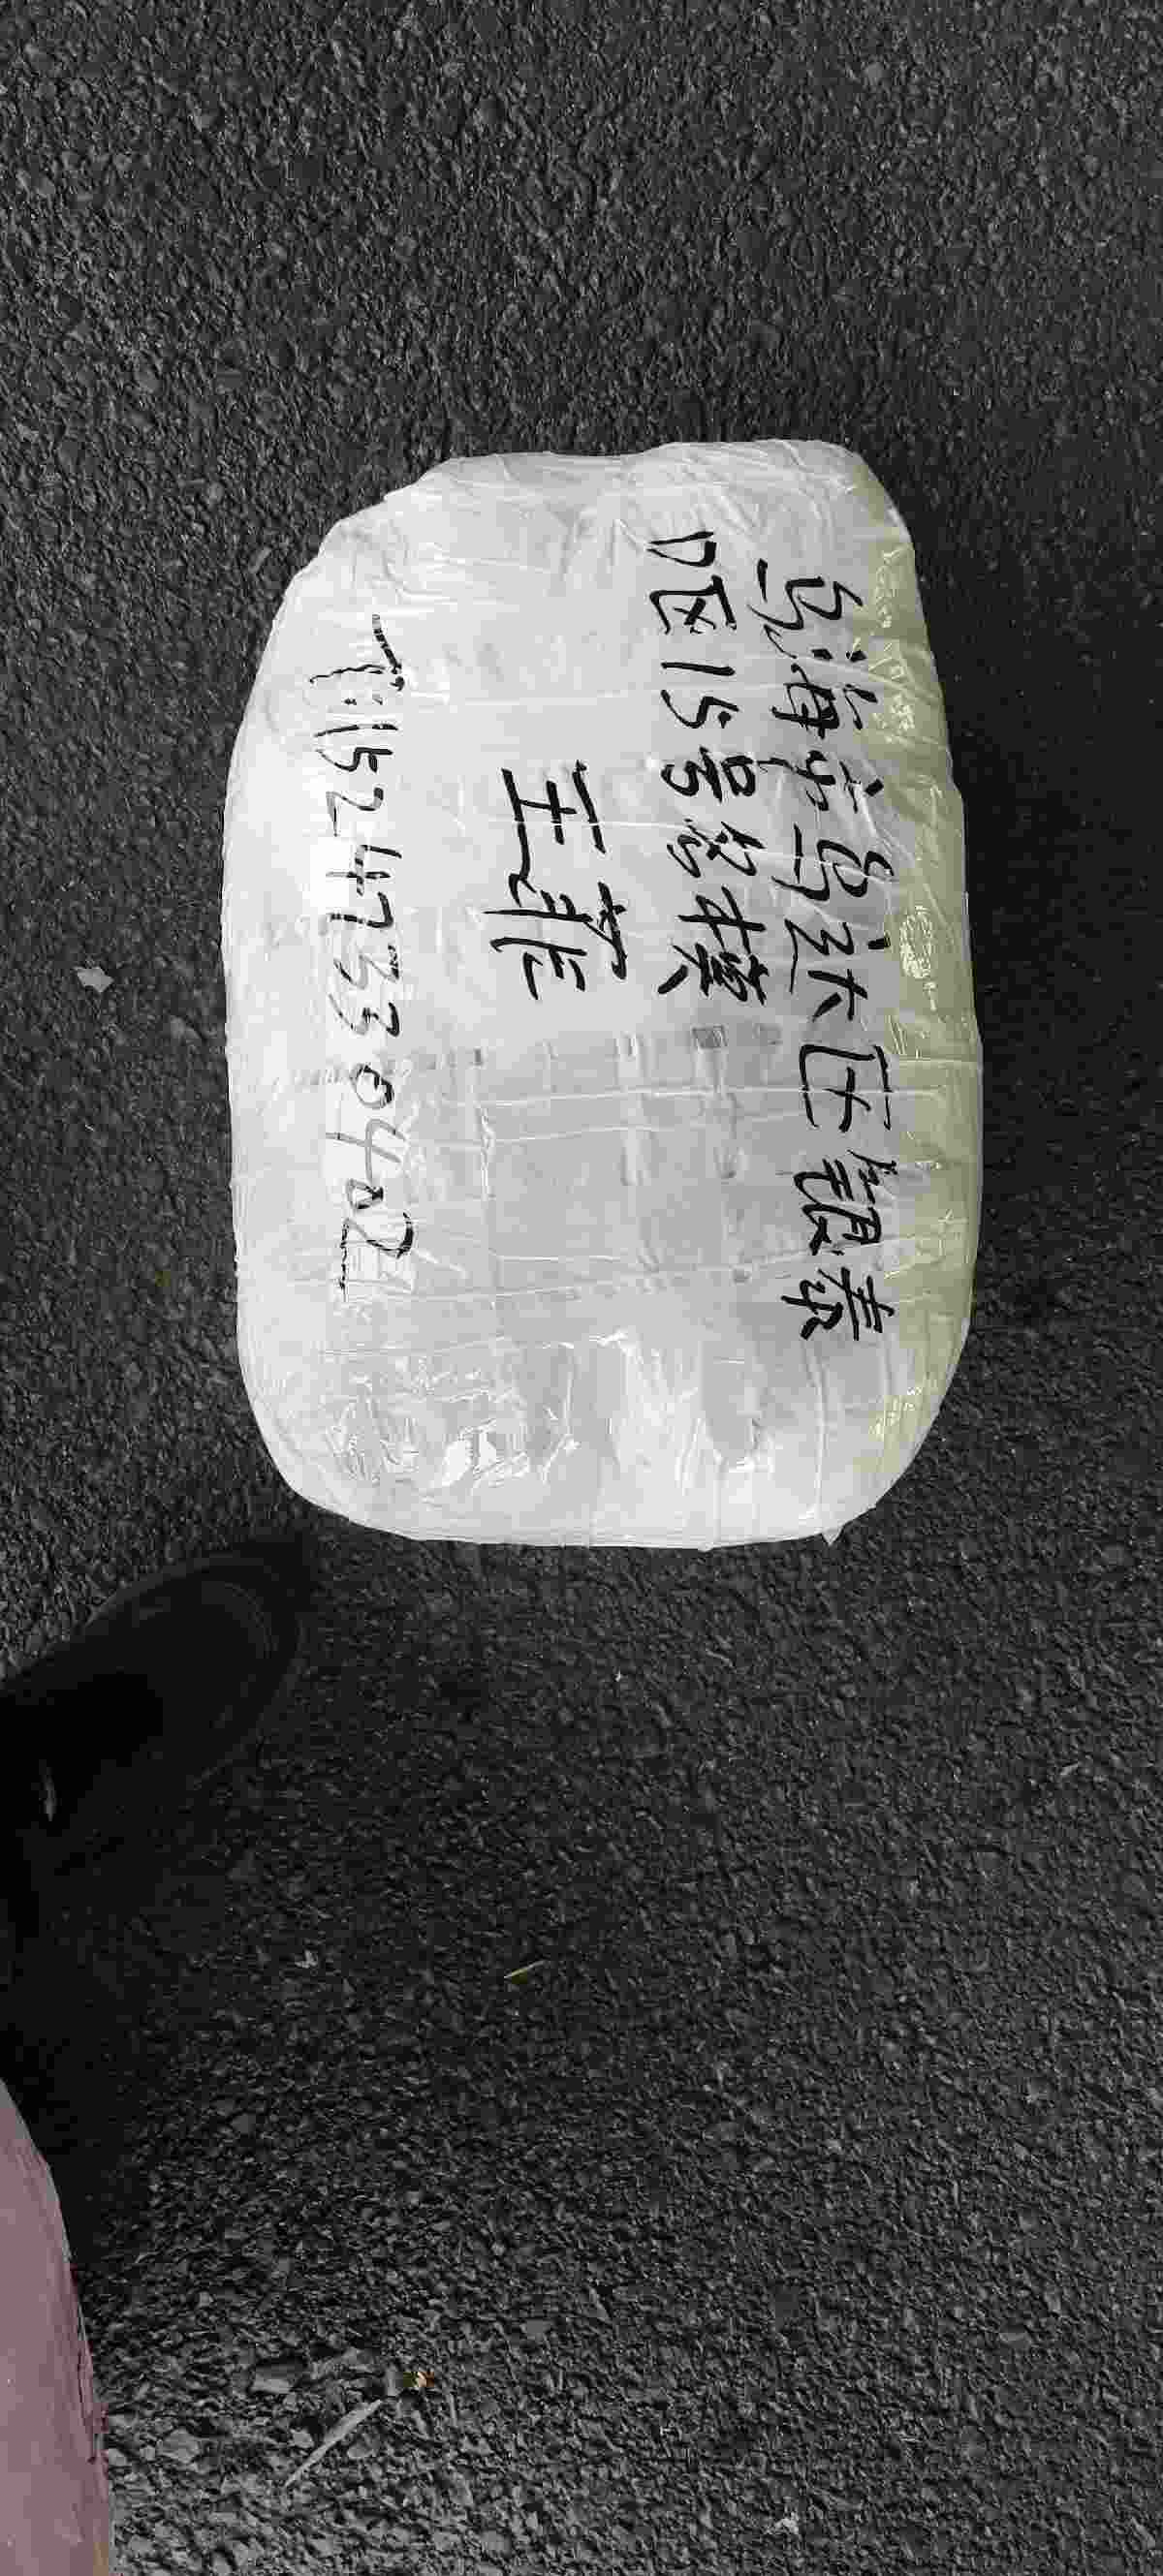 乌海市乌达区银泰
D区15号楼
王菲
15247330402